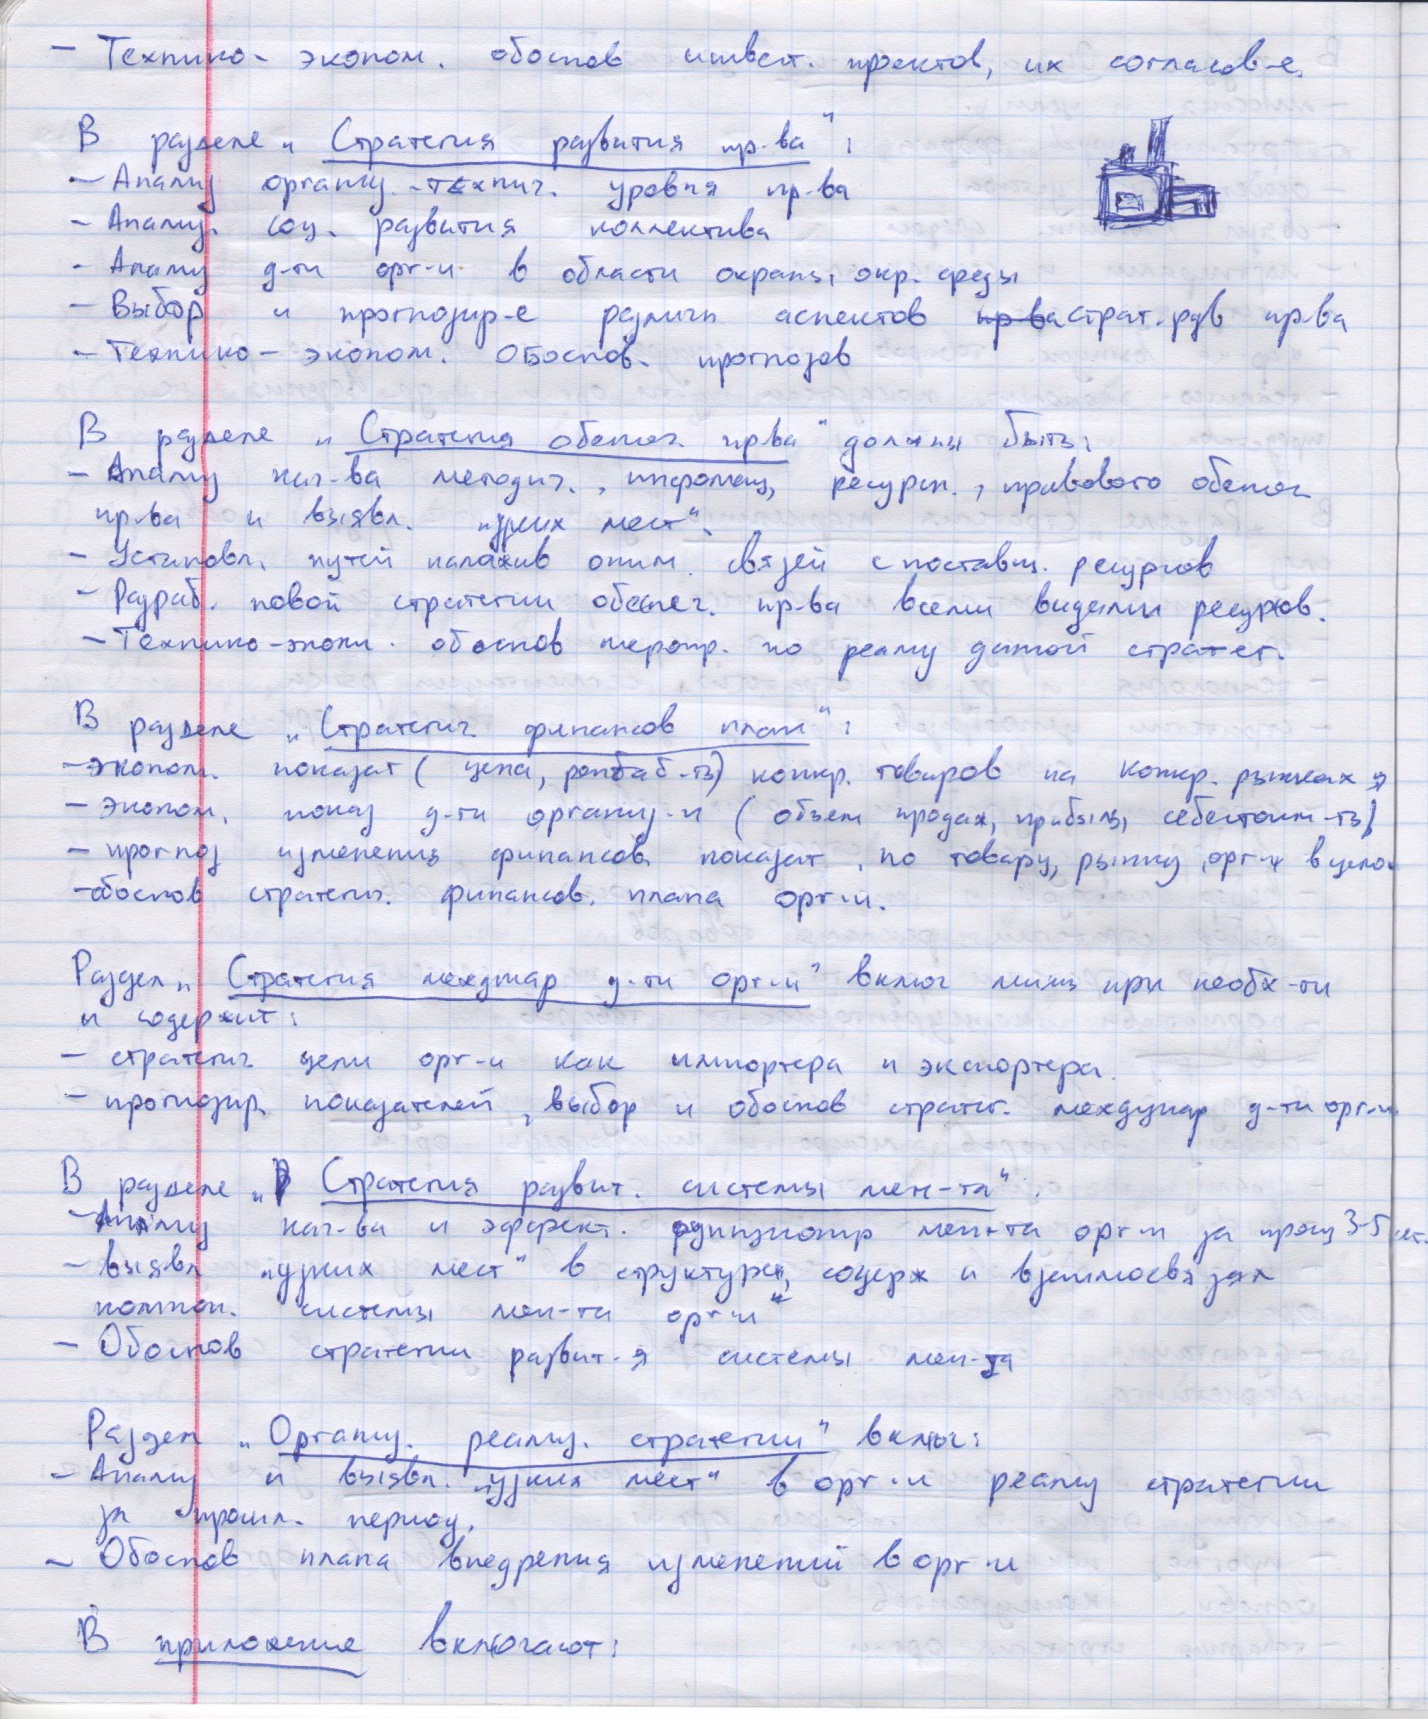 - Технико- эконом. обоснов инвест. проектов, их согласов-е.
В разделе „Стратегия развития пр-ва":
- Анализ организ.-технич. уровня пр-ва
- Анализ. соц. развития коллектива
- Анализ д-ти орг-и в области охраны окр. среды
- Выбор и прогнозир-е различн аспектов пр-ва страт. рзв пр-ва
- Технико- эконом. Обоснов. прогнозов
В разделе „Стратегия обеспеч. пр-ва" должны быть:
- Анализ кач-ва методич., информац, ресурсн., правового обеспеч
пр-ва и выявл. „узких мест".
- Установл. путей налажив оптим. связей с поставщ. ресурсов
- Разраб. новой стратегии обеспеч. пр-ва всеми видами ресурсов.
- Технико-эконом. обоснов меропр. по реализ данной стратег.
В разделе „Стратегич. финансов план":
- эконом. показат (цена, рентаб-ть) конкр. товаров на конкр. рынках
- эконом. показ д-ти организ-и (объем продаж, прибыль, себестоим-ть)
- прогноз изменения финансов показат. по товару, рынку, орг-и в целом
- обоснов стратегич. финансов. плана орг-и.
Раздел „Стратегия междунар д-ти орг-и" включ лишь при необх-ти
и содержит:
- стратегич цели орг-и как импортера и экспортера.
- прогнозир. показателей, выбор и обоснов стратег. междунар д-ти орг-и
В разделе „Стратегия развит. системы мен-та".
- Анализ кач-ва и эффект. функционир мен-та орг-и за прош 3-5 лет.
- выявл „узких мест" в структуре, содерж и взаимосвязях
компон. системы мен-та орг-и"
- Обоснов стратегии развит-я системы мен-та
Раздел „Организ. реализ. стратегии" включ:
- Анализ и выявл. „узких мест" в орг-и реализ стратегии
за прошл. период.
- Обоснов плана внедрения изменений в орг-и
В приложение включают: